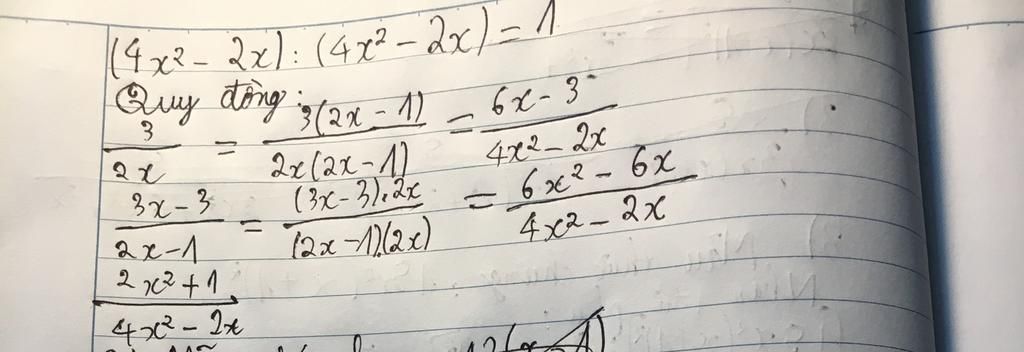 (4x² - 2x) : (4x² - 2x) = 1
Quy đồng:
3/2x = 3(2x - 1)/2x(2x - 1) = 6x - 3/4x² - 2x
3x - 3/2x - 1 = (3x - 3).2x/(2x - 1)(2x) = 6x² - 6x/4x² - 2x
2x² + 1/4x² - 2x